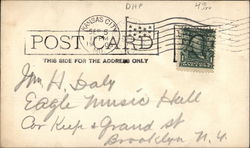 DHP
KANSAS CITY
POST CARD
THIS SIDE FOR THE ADDRESS ONLY
Wm H. Daly
Eagle Music Hall
Cor Keep & Grand st
Brooklyn N.Y.